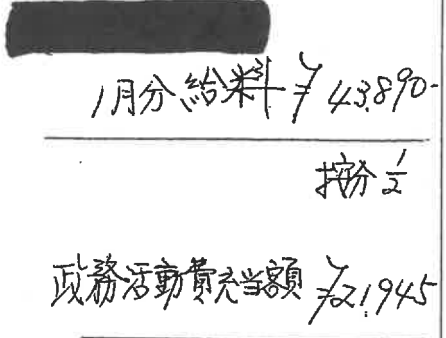 1月分給料 ¥43,890-
按分 1/2
政務活動費充当額 ¥21,945